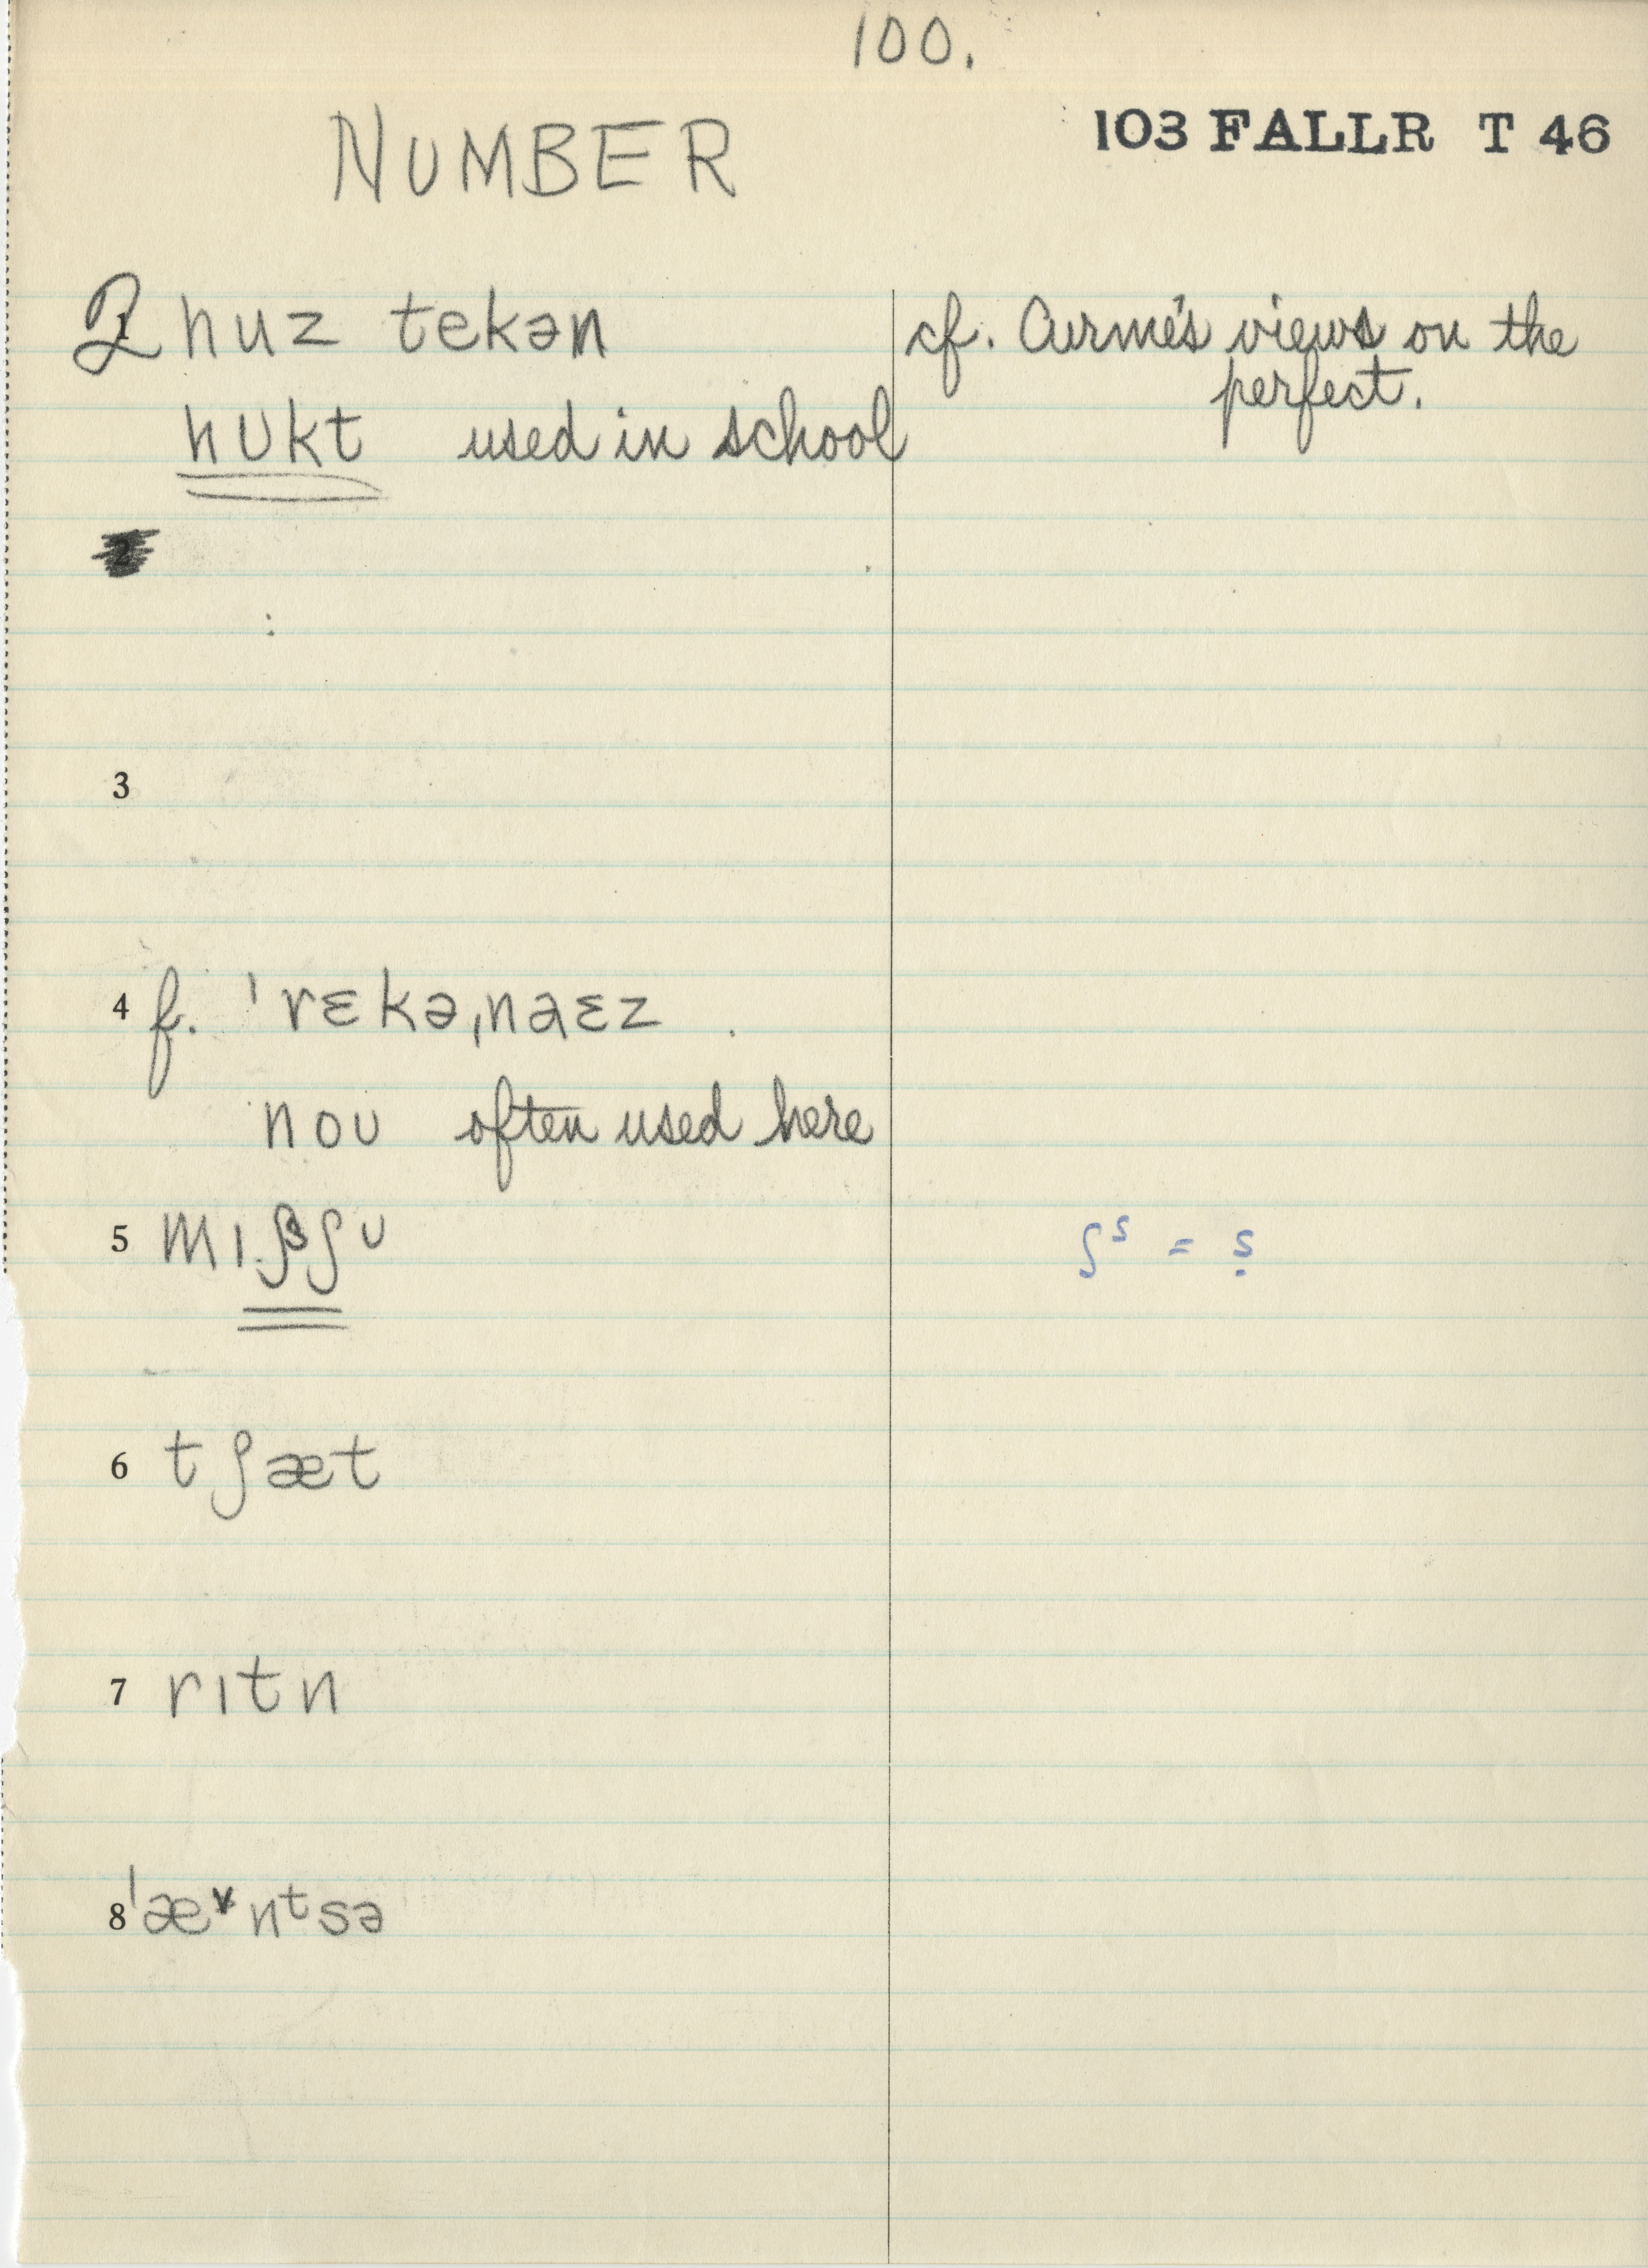 100.
NUMBER
103 FALLR T 46
2 huz tekən
cf. Curme's views on the
perfect.
hʊkt used in school
3
4 f. ˈrɛkəˌnaɛz .
noʊ often used here
5 mɪʃʃʊ
ʃˢ = ṣ
6 tʃæt
7 rɪtn
8 ˈæ˅nᵗsə